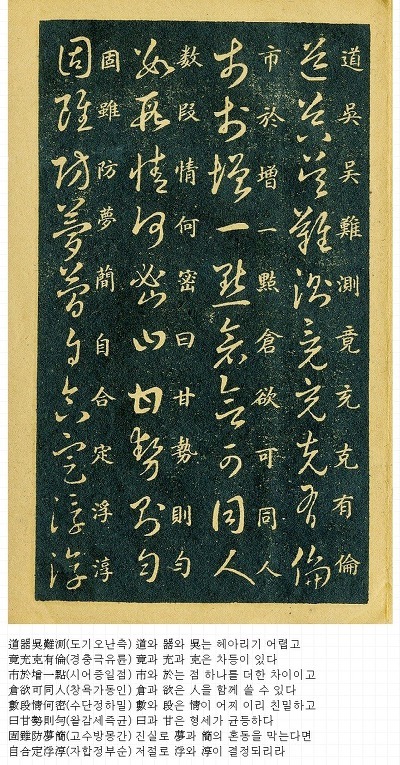 道吳吳難測竟充克有倫
道器吳難測竟充克有倫
市於增一點倉欲可同人
市於增一點倉欲可同人
數段情何密曰甘勢則勻
數段情何密曰甘勢則勻
固雖防夢簡自合定浮淳
固雖防夢簡自合定浮淳
道器吳難測(도기오난측) 道와 器와 吳는 헤아리기 어렵고
竟充克有倫(경충극유륜) 竟과 充과 克은 차등이 있다
市於增一點(시어증일점) 市와 於는 점 하나를 더한 차이이고
倉欲可同人(창욕가동인) 倉과 欲은 人을 함께 쓸 수 있다
數段情何密(수단정하밀) 數와 段은 情이 어찌 이리 친밀하고
曰甘勢則勻(왈감세즉균) 曰과 甘은 형세가 균등하다
固雖防夢簡(고수방몽간) 진실로 夢과 簡의 혼동을 막는다면
自合定浮淳(자합정부순) 저절로 浮와 淳이 결정되리라